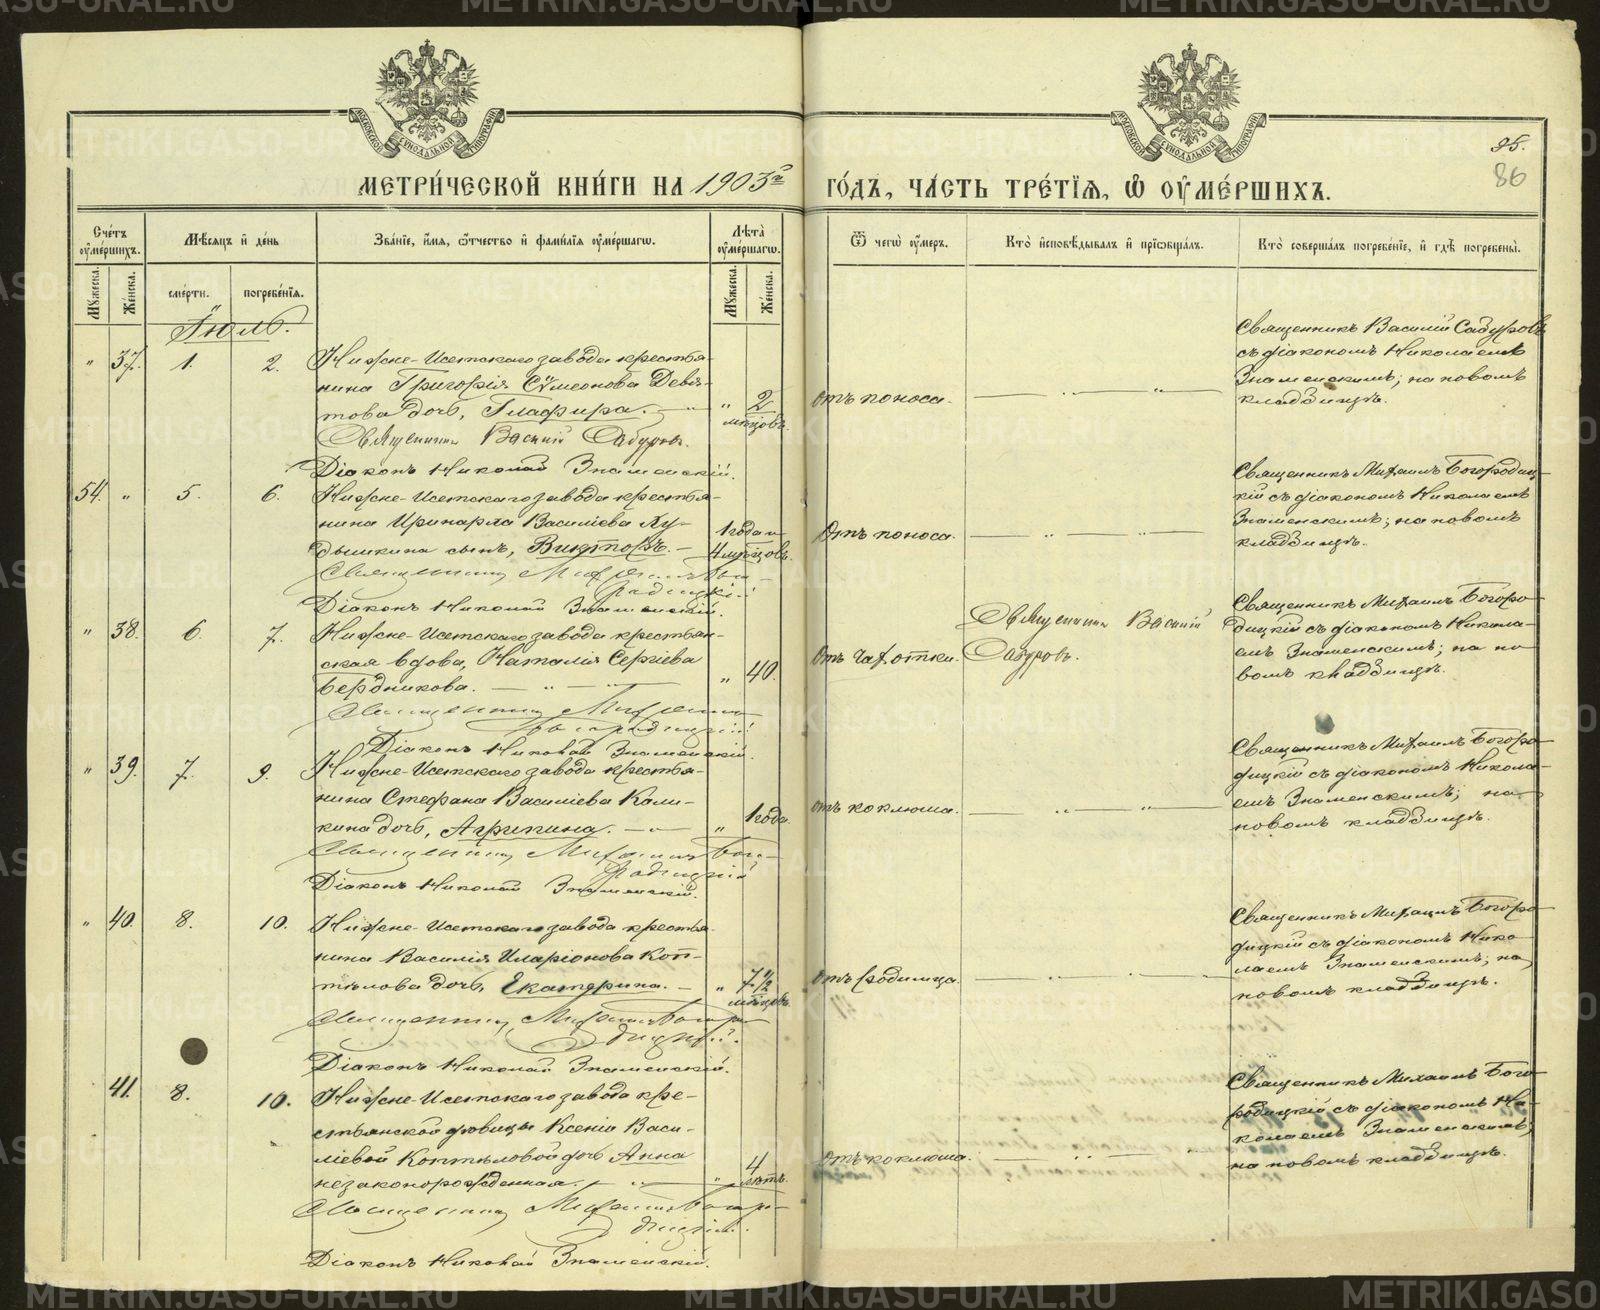 МЕТРИ́ЧЕСКОЙ КНИ́ГИ НА 1903й
ГО́ДЪ, ЧА́СТЬ ТРЕ́ТІЯ, Ѡ ОУМЕ́РШИХЪ.
95.
86
Сче́тъ оумéршихъ.
Мѣ́сяцъ и де́нь
Зва́ніе, и́мя, ѻ́тчество и фами́лія оуме́ршагѡ.
Лѣта̀ оуме́ршагѡ.
Ѿ чегѡ̀ оу́меръ.
Кто̀ исповѣ́дывалъ и приѡбща́лъ.
Кто̀ соверша́лъ погребе́ніе, и гдѣ̀ погребены̀.
Мꙋ́жеска.
Же́нска.
сме́рти.
погребе́нія.
Мꙋ́жеска.
Же́нска.
Іюль.
" 37. 1. 2.
Нижне-Исетскаго завода крестья-
нина Григорія Сѵмеонова Девя-
това дочь, Глафира. — " —
" 2 мѣсцовъ.
Священникъ Василій Сабуровъ.
Діаконъ Николай Знаменскій.
отъ поноса.
— " — " —
Священникъ Василій Сабуровъ
съ діакономъ Николаемъ
Знаменскимъ; на новомъ
кладбищѣ.
54. " 5. 6.
Нижне-Исетскаго завода крестья-
нина Иринарха Василіева Ху-
дышкина сынъ, Викторъ. —
1 года и
4 мѣсцовъ.
Священникъ Михаилъ Бого-
родицкій.
Діаконъ Николай Знаменскій.
Отъ поноса.
— " — " —
Священникъ Михаилъ Богородиц-
кій съ діакономъ Николаемъ
Знаменскимъ; на новомъ
кладбищѣ.
" 38. 6. 7.
Нижне-Исетскаго завода крестьян-
ская вдова, Наталія Сергіева
Бердникова. — " —
" 40.
Священникъ Михаилъ
Богородицкій.
Діаконъ Николай Знаменскій.
Отъ чахотки.
Священникъ Василій
Сабуровъ.
Священникъ Михаилъ Богоро-
дицкій съ діакономъ Никола-
емъ Знаменскимъ; на но-
вомъ кладбищѣ.
" 39. 7. 9.
Нижне-Исетскаго завода крестья-
нина Стефана Василіева Кали-
кина дочь, Агрипина. — " —
" 1 года.
Священникъ Михаилъ Бого-
родицкій
Діаконъ Николай Знаменскій.
отъ коклюша.
— " — " —
Священникъ Михаилъ Богоро-
дицкій съ діакономъ Никола-
емъ Знаменскимъ; на
новомъ кладбищѣ.
" 40. 8. 10.
Нижне-Исетскаго завода крестья-
нина Василія Иларіонова Коп-
тѣлова дочь, Екатерина. —
" 7 1/2
мѣсцовъ.
Священникъ Михаилъ Богоро-
дицкій.
Діаконъ Николай Знаменскій.
Отъ родимца.
— " — " —
Священникъ Михаилъ Богоро-
дицкій съ діакономъ Нико-
лаемъ Знаменскимъ; на
новомъ кладбищѣ.
41. 8. 10.
Нижне-Исетскаго завода кре-
стьянской дѣвицы Ксеніи Васи-
ліевой Коптѣловой дочь Анна
незаконорожденная. — " —
" 4
лѣтъ.
Священникъ Михаилъ Богоро-
дицкій.
Діаконъ Николай Знаменскій.
отъ коклюша.
— " — " —
Священникъ Михаилъ Бого-
родицкій съ діакономъ Ни-
колаемъ Знаменскимъ;
на новомъ кладбищѣ.
METRIKI.GASO-URAL.RU